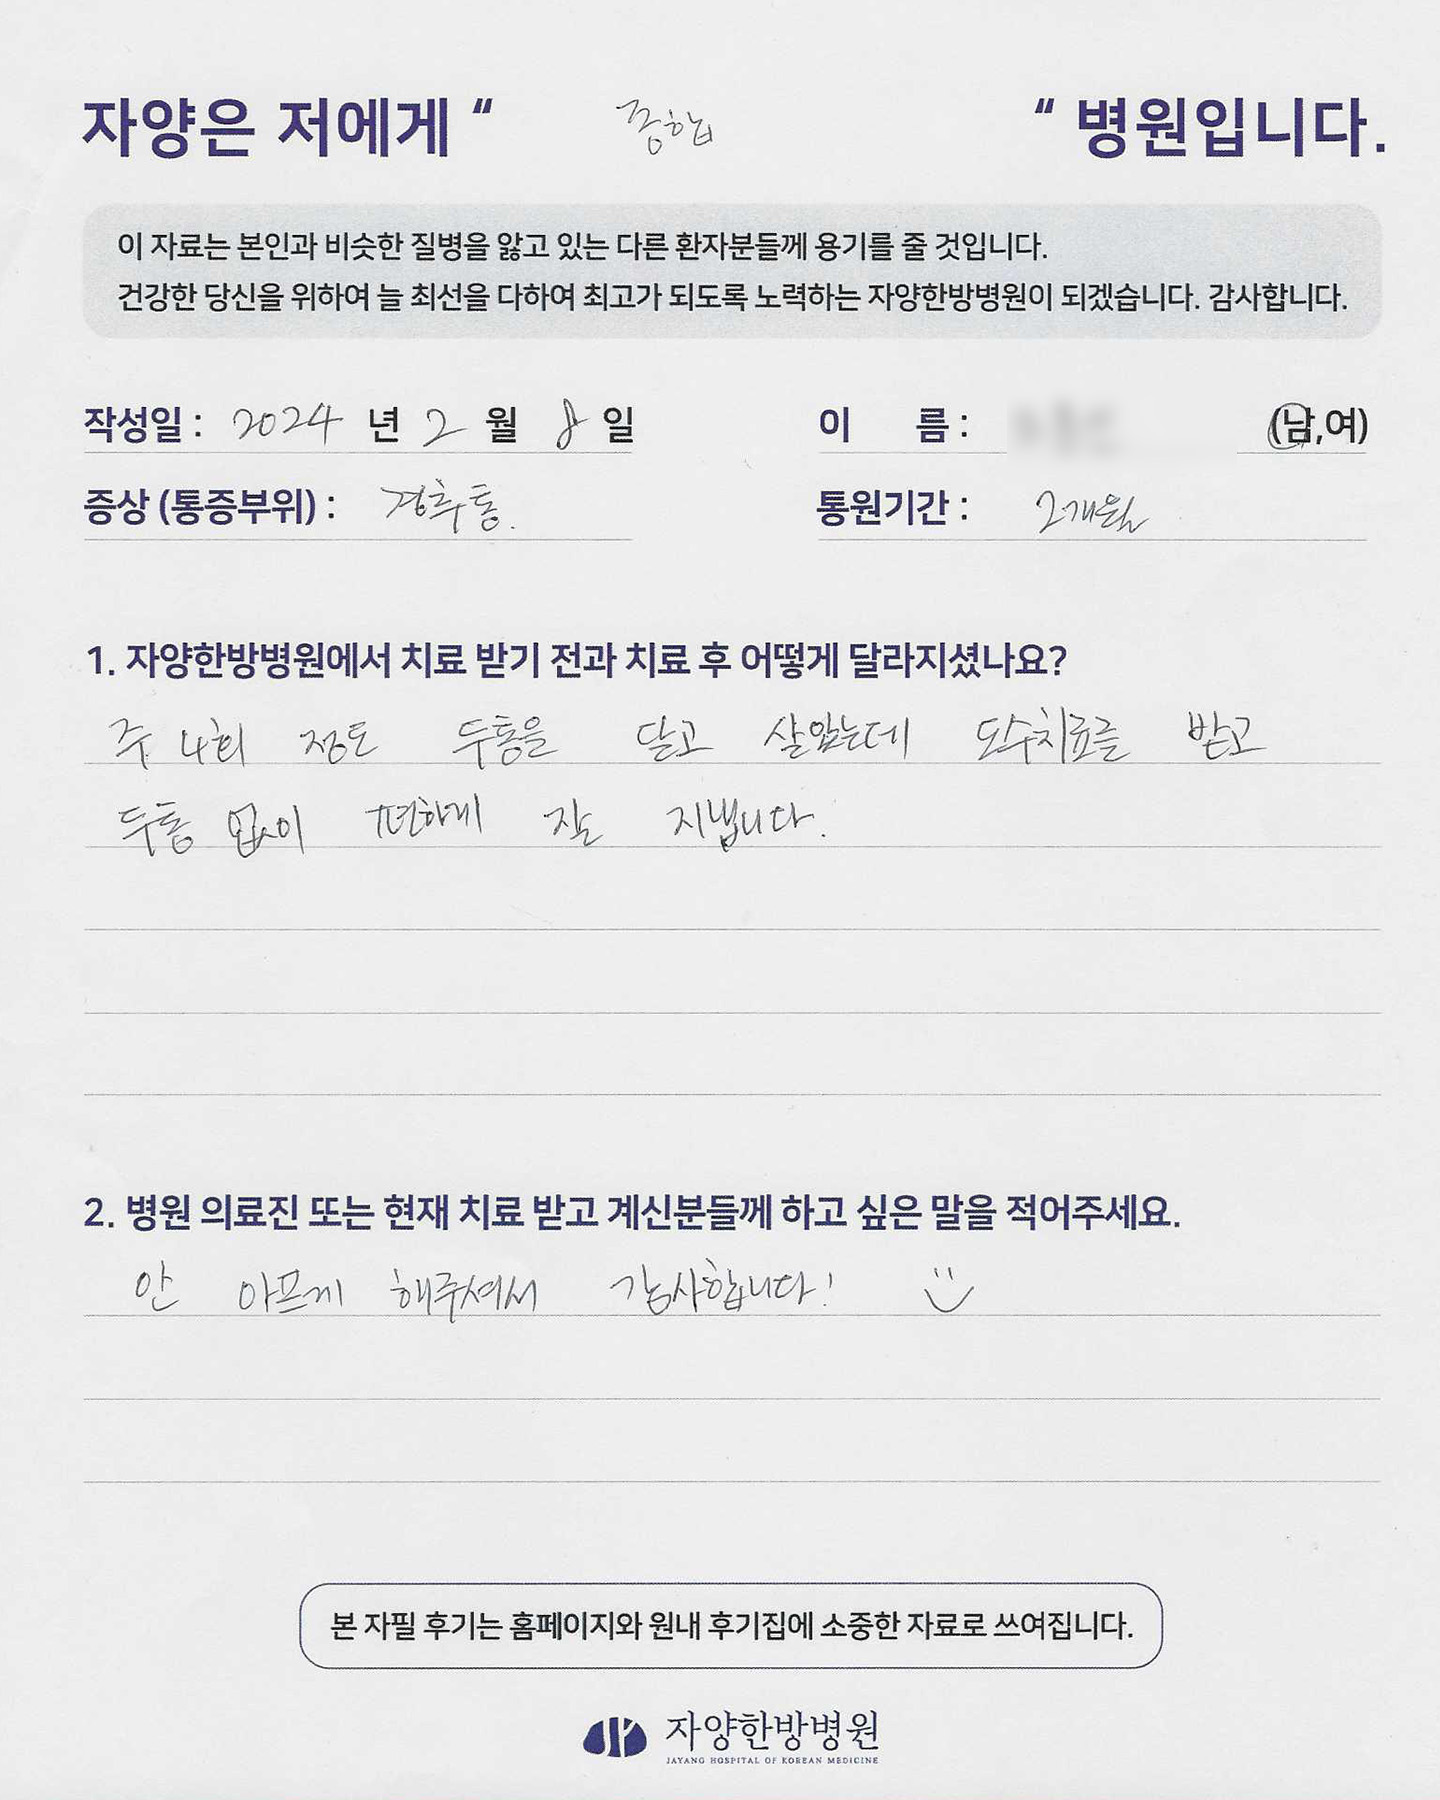 자양은 저에게 “ 종합 “ 병원입니다.
이 자료는 본인과 비슷한 질병을 앓고 있는 다른 환자분들께 용기를 줄 것입니다.
건강한 당신을 위하여 늘 최선을 다하여 최고가 되도록 노력하는 자양한방병원이 되겠습니다. 감사합니다.
작성일 : 2024 년 2 월 8 일 이 름 : (남,여)
증상 (통증부위) : 경추통. 통원기간 : 2개월
1. 자양한방병원에서 치료 받기 전과 치료 후 어떻게 달라지셨나요?
주 4회 정도 두통을 달고 살았는데 도수치료를 받고
두통 없이 편하게 잘 지냅니다.
2. 병원 의료진 또는 현재 치료 받고 계신분들께 하고 싶은 말을 적어주세요.
안 아프게 해주셔서 감사합니다!
본 자필 후기는 홈페이지와 원내 후기집에 소중한 자료로 쓰여집니다.
자양한방병원
JAYANG HOSPITAL OF KOREAN MEDICINE